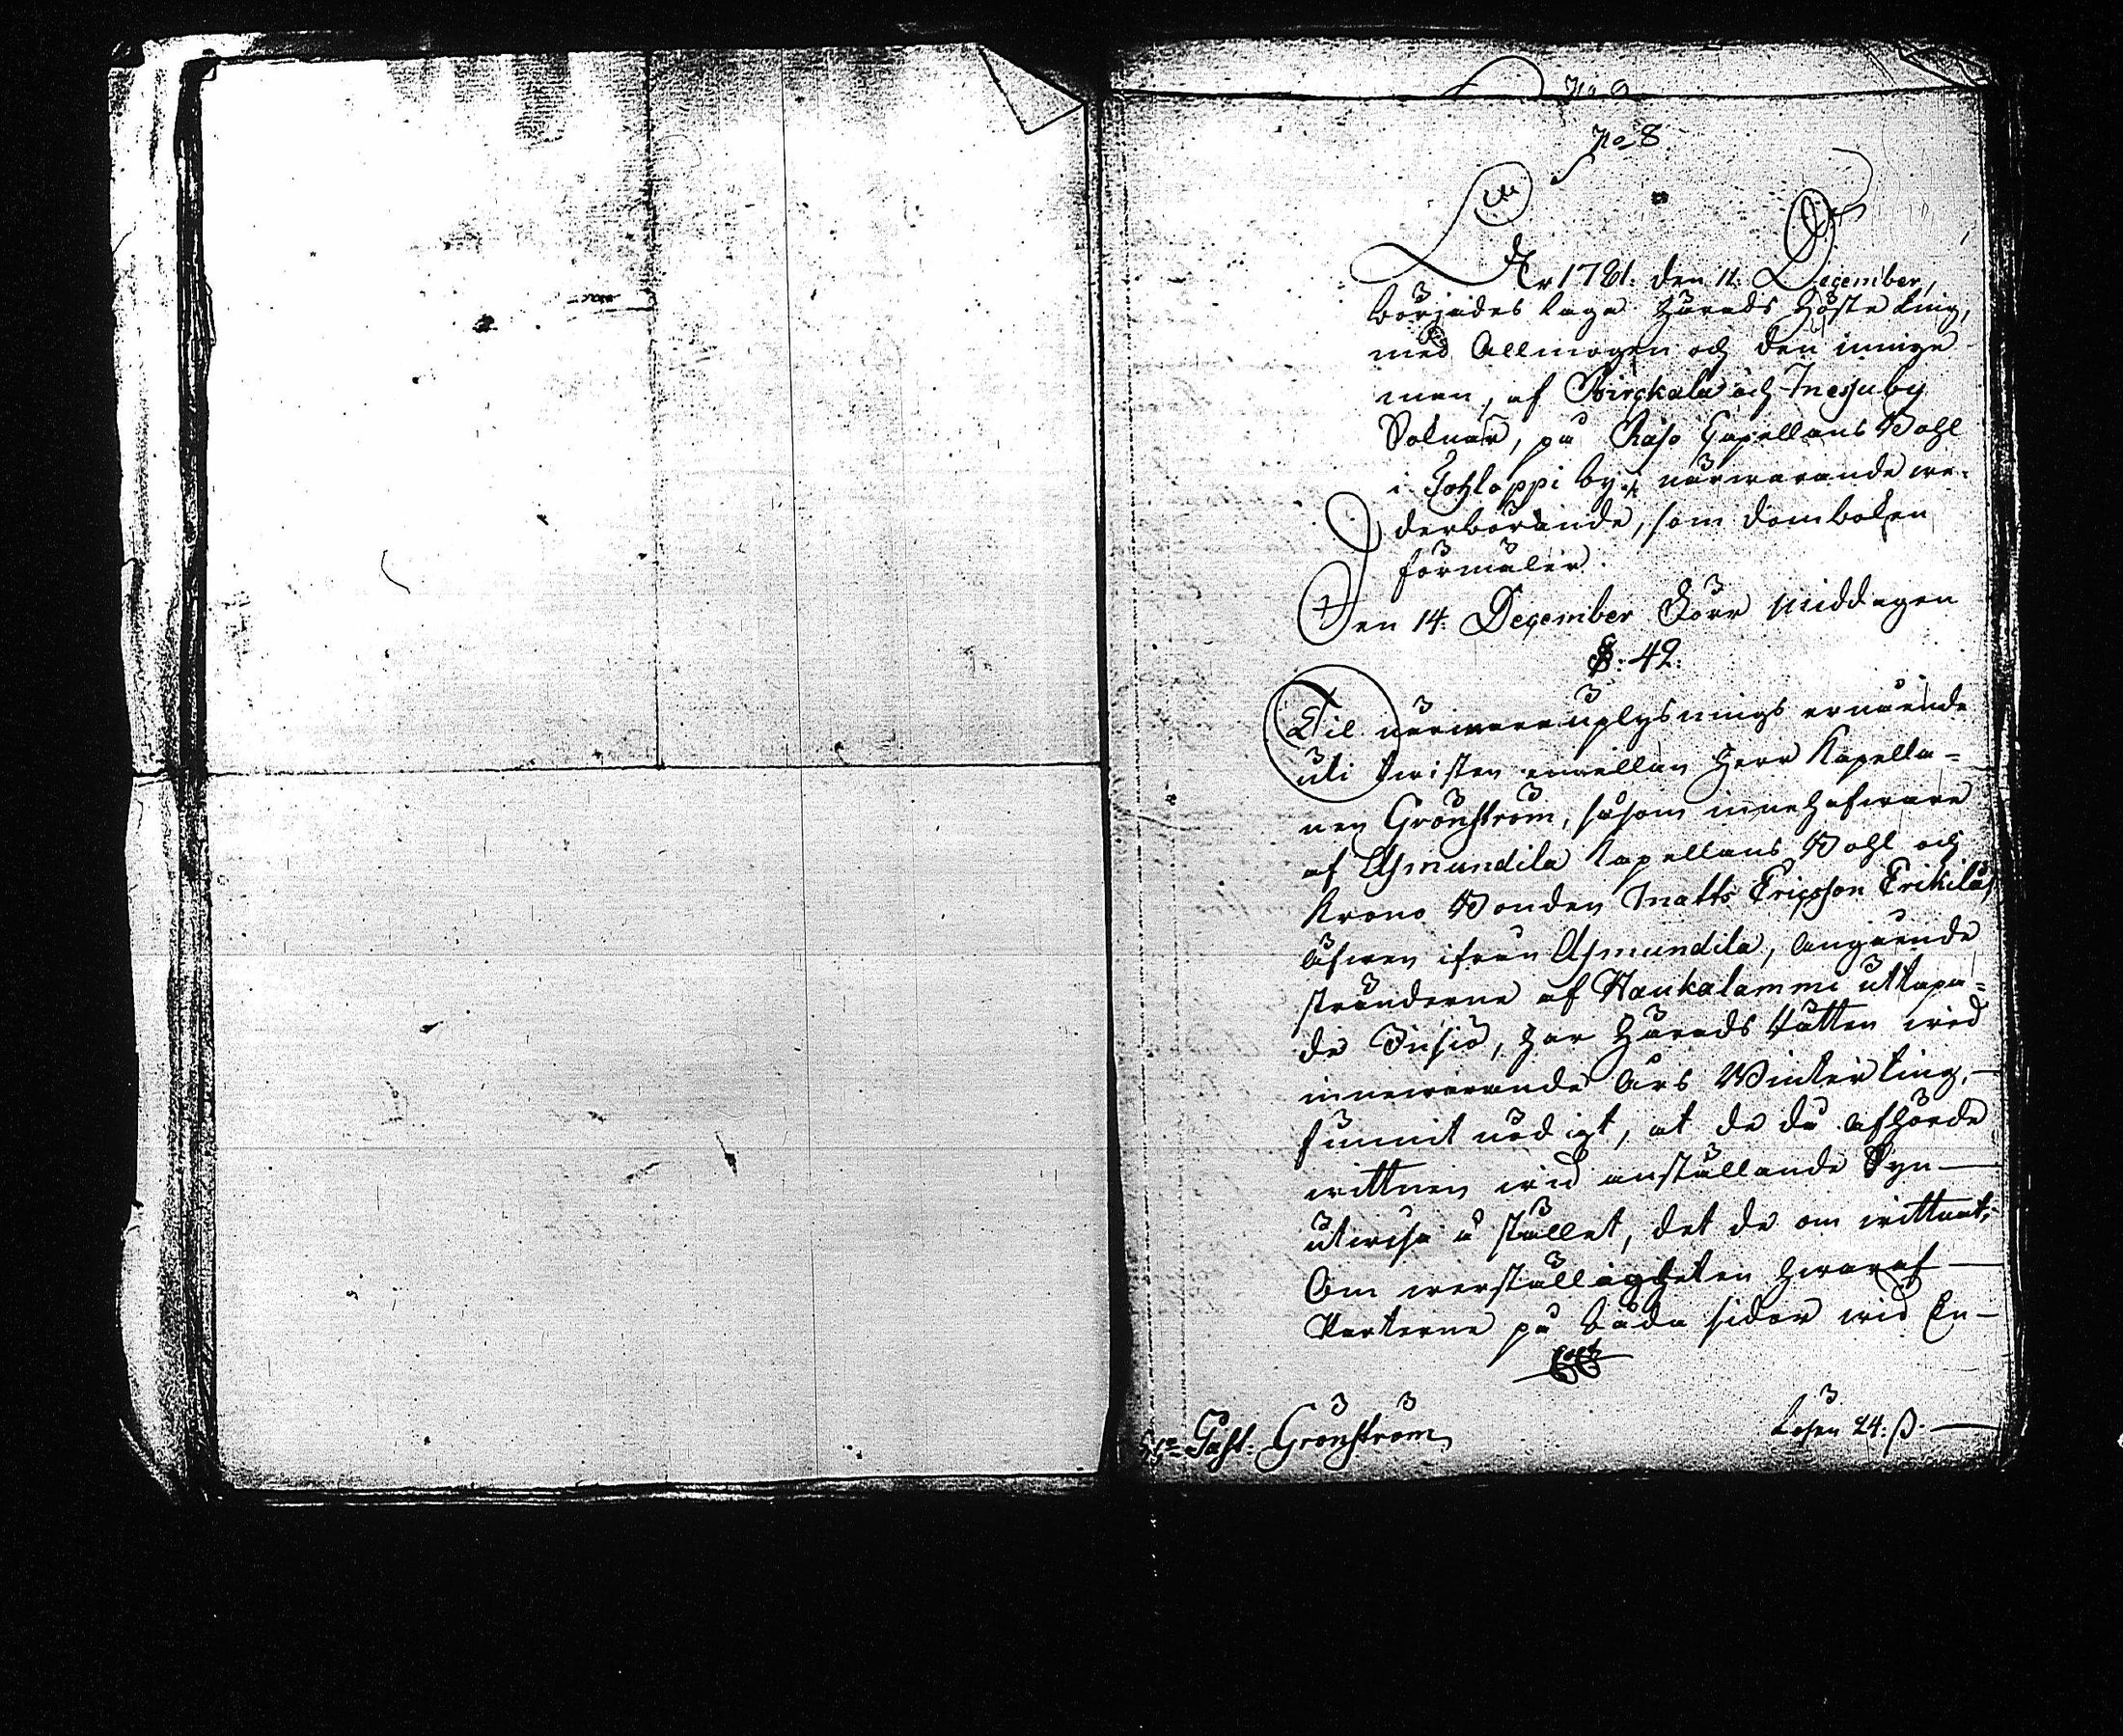 No 8.
År 1781. den 11. December,
börjades laga Härads Höste ting,
med Allmogen och den menige
man, af Birckala och Messuby
Soknar, på Capellans Bohl
i Tohloppi by; närwarande we-
derbörande, som domboken
förmäler.
Den 14. December Förr middagen
§. 42.
Til närmare uplysnings ernående
uti twisten emellan Herr Kapella-
nen Grönström, såsom innehafware
af Asmundila Kapellans Bohl och
Krono Bonden Matts Ericsson Erikilä,
äfwen ifrån Asmundila, angående
stränderne af Haukalammi uttapa-
de Insiö, har Härads Rätten wid
innewarande års Winter ting,
funnit nödigt, at de då afhörde
wittnen wid anställande Syn
utwisa å stället, det de om wittnat;
Om werställigheten hwaraf
Parterne på båda sidor wid En-
Grönström
Lösen 24. ß.